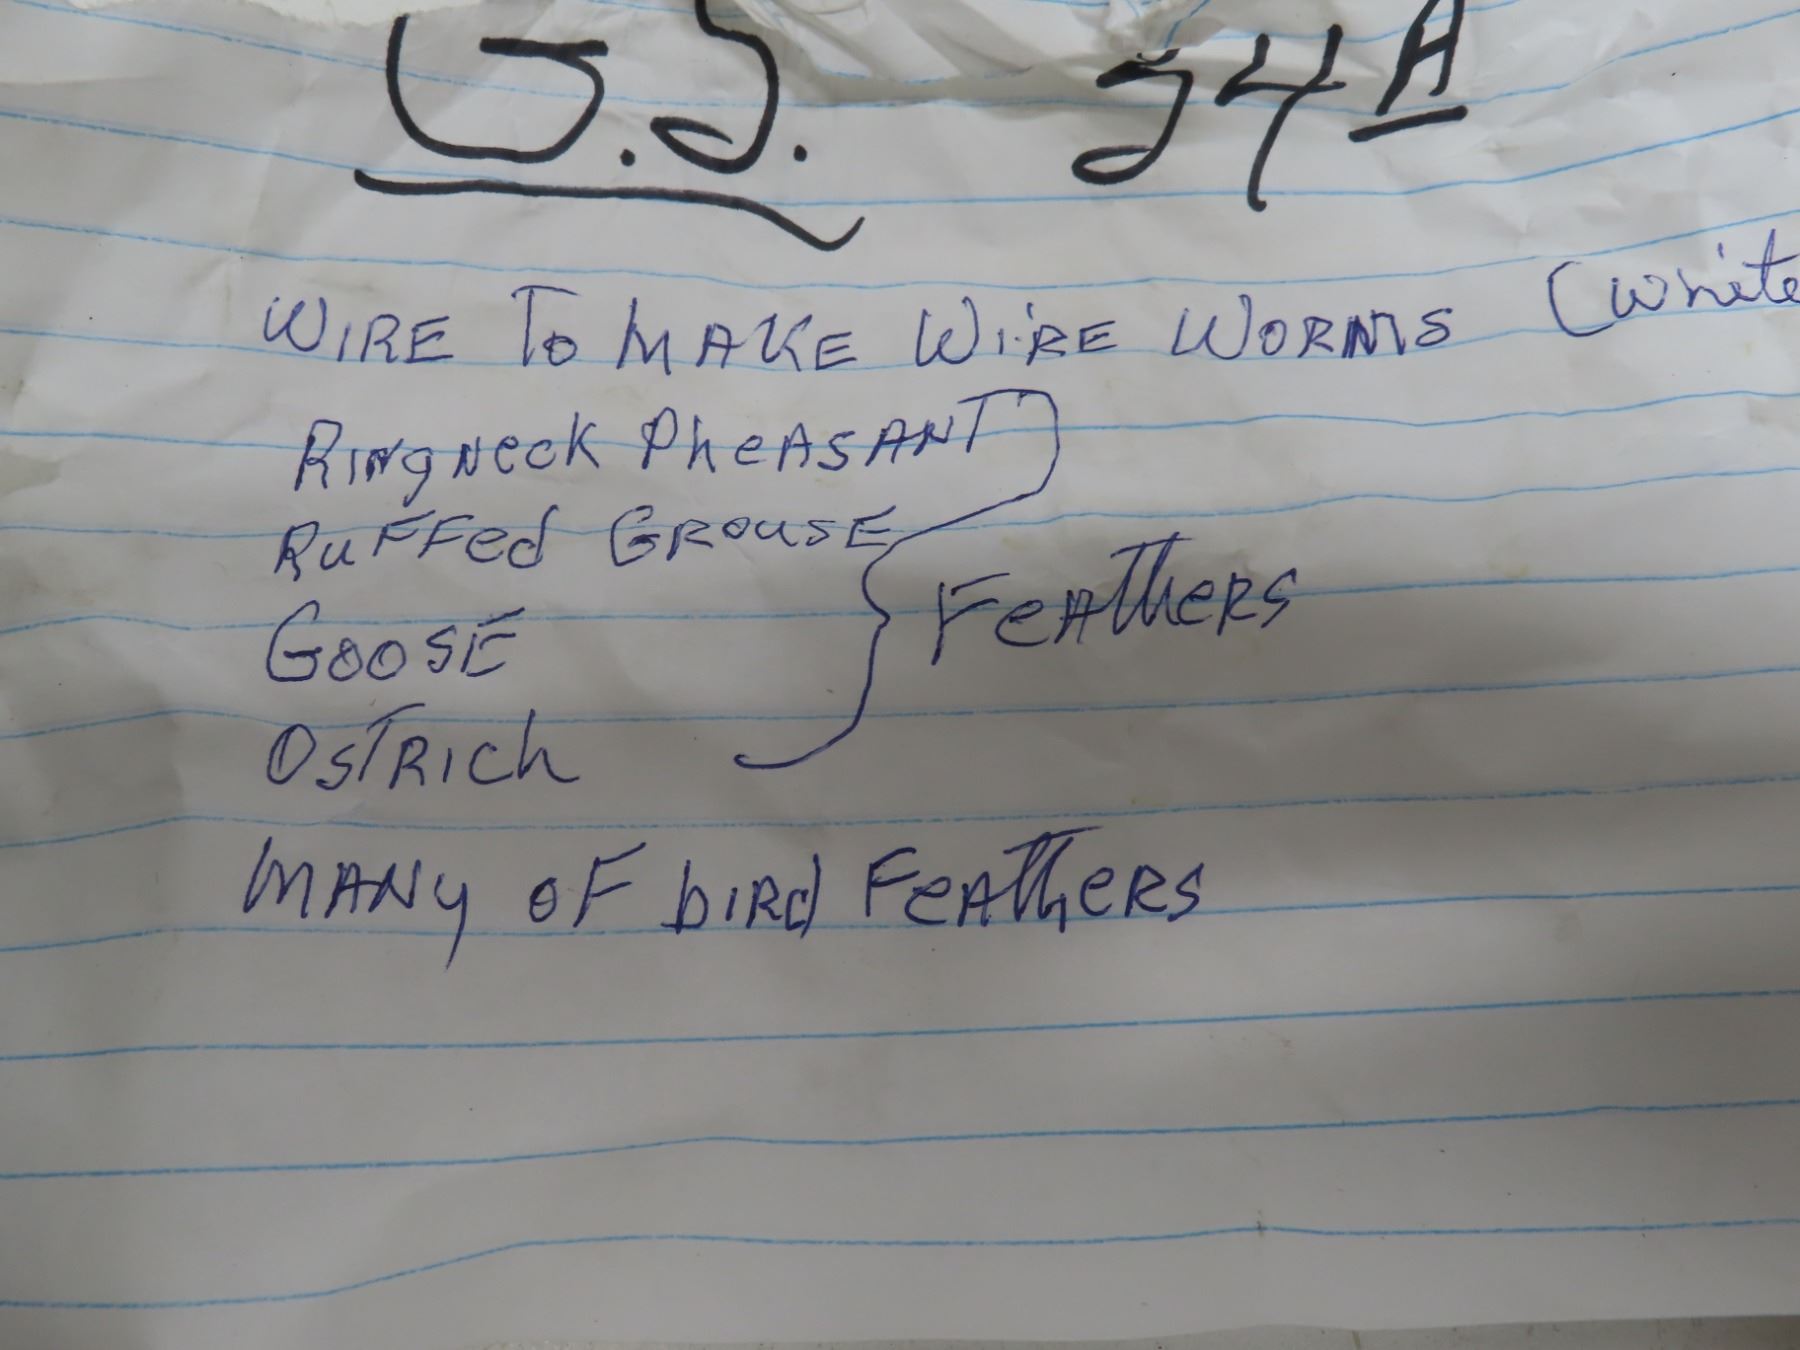 G.J. 54A
WIRE TO MAKE WIRE WORMS (White
RINgNeck PheASANT
RuFFed GROuSE
GOOSE
OSTRICh
FeAThERS
MANy OF bIRd FeAThERS